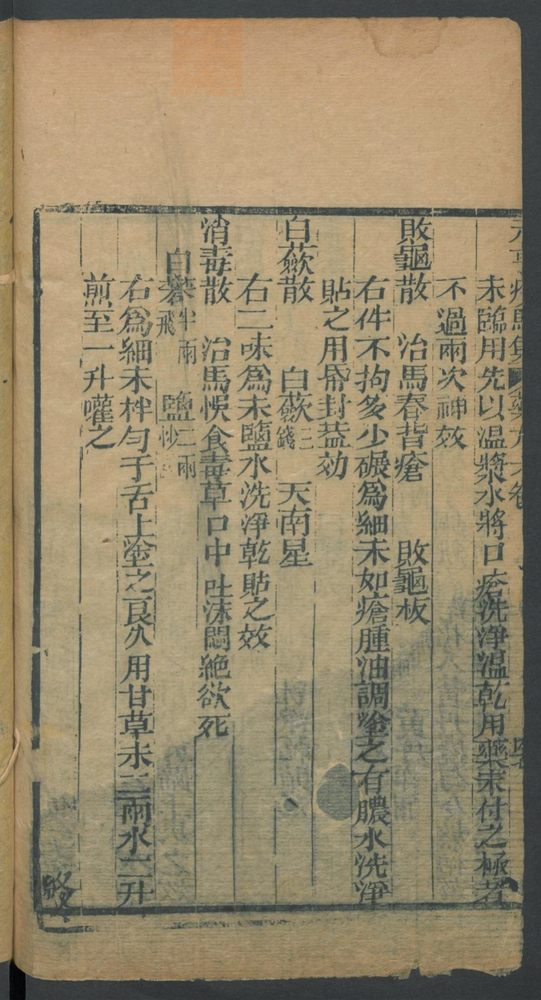 元亨療馬集 藥方 卷
末臨用先以温漿水將口瘡洗淨温乾用藥末付之極者
不過兩次神效
敗龜散 治馬春背瘡 敗龜板
右件不拘多少碾爲細末如瘡腫油調塗之有膿水洗淨
貼之用帋封葢効
白蘞散 白蘞三錢 天南星
右二味爲末鹽水洗淨乾貼之效
消毒散 治馬悞食毒草口中吐沫悶絶欲死
白礬半兩飛 鹽二兩炒
右爲細末拌匀于舌上塗之良久用甘草末三兩水二升
煎至一升嚾之
終